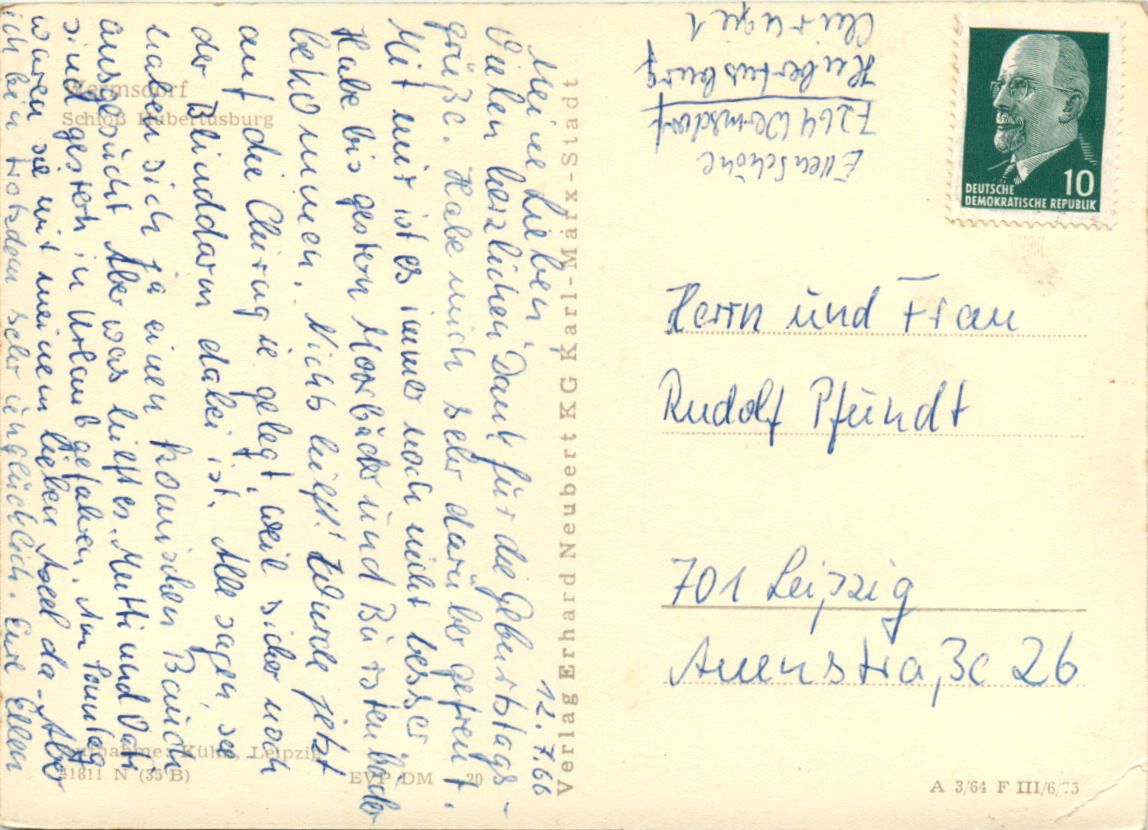 12.7.66
Meine Lieben!
Vielen herzlichen Dank für die Geburtstags-
grüße. Habe mich sehr darüber gefreut.
Mit mir ist es immer noch nicht besser.
Habe bis gestern Moorbäder und Bürstenbäder
bekommen. Nichts hilft! Wurde jetzt
auf die Chirugie gelegt, weil sicher noch
der Blinddarm dabei ist. Alle sagen sie
haben sich ja einen komischen Bauch
ausgesucht. Aber was hilft es. Mutti und Vati
sind gestern in Urlaub gefahren. Am Sonntag
waren sie mit meinem lieben Axel da. Aber
ich bin trotzdem sehr unglücklich. Eure Ellen
Wermsdorf
Schloß Hubertusburg
Aufnahme: Kühn, Leipzig
41811 N (35 B)
EVP DM 20
Verlag Erhard Neubert KG Karl-Marx-Stadt
Ellen Schöne
7264 Wermsdorf
Hubertusburg
Chirugie 1
DEUTSCHE
DEMOKRATISCHE REPUBLIK
10
Herrn und Frau
Rudolf Pfundt
701 Leipzig
Auenstraße 26
A 3/64 F III/6/75